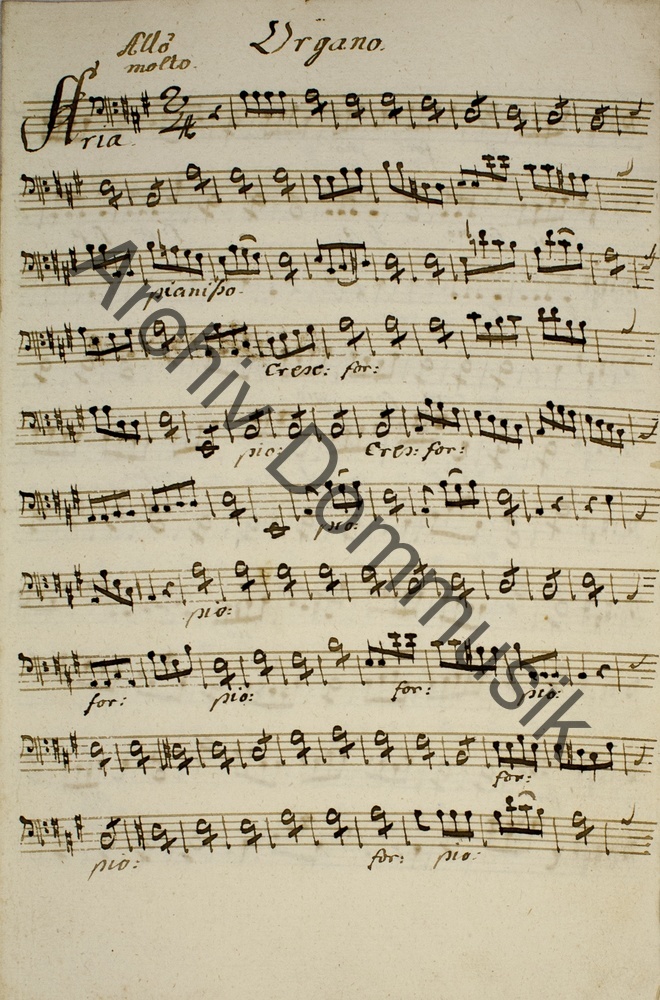 Allô Organo.
molto.
Aria
2
4
pianisso.
Cresc: for:
pio: Cres: for:
pio:
pio:
for: pio: for: pio:
for:
pio: for: pio:
Archiv Dommusik